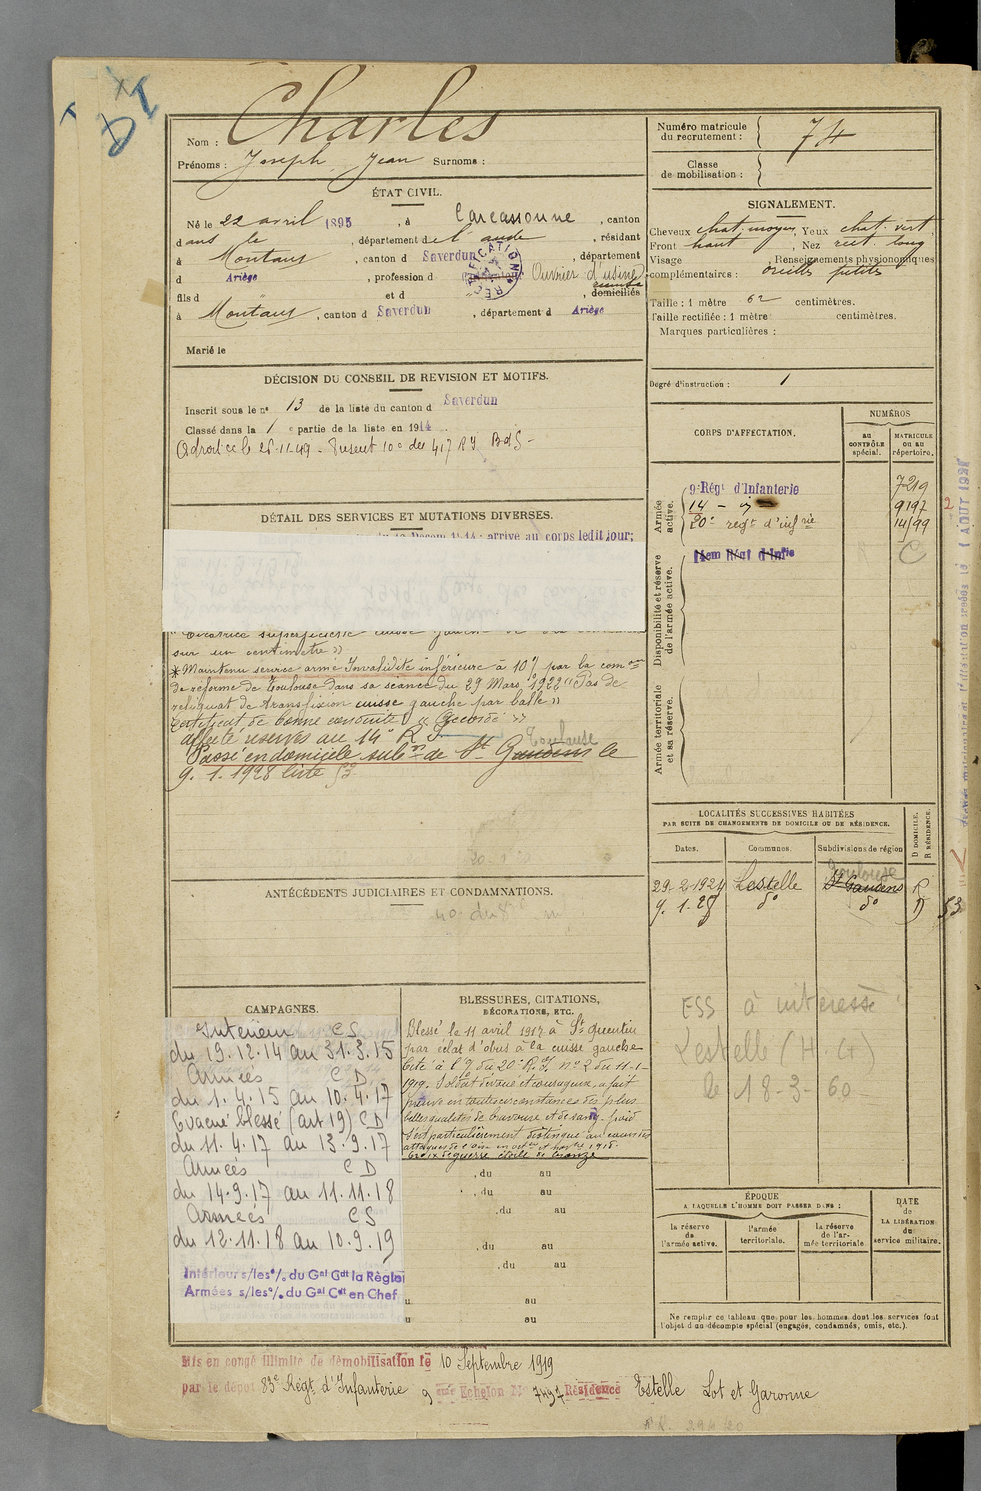 Nom : Charles
Prénoms : Joseph Jean Surnoms :
Numéro matricule
du recrutement : 74
Classe
de mobilisation :
ÉTAT CIVIL.
Né le 22 avril 1895, à Carcassonne, canton
dans le, département de l'aude, résidant
à Montaut, canton d Saverdun, département
d Ariège, profession d Ouvrier d'usine
fils d et d, domiciliés
à Montaut, canton d Saverdun, département d Ariège
Marié le
SIGNALEMENT.
Cheveux chat. moyen, Yeux chat. vert
Front haut, Nez rect. long
Visage, Renseignements physionomiques
complémentaires : oreilles petites
Taille : 1 mètre 62 centimètres.
Taille rectifiée : 1 mètre centimètres.
Marques particulières :
Degré d'instruction : 1
DÉCISION DU CONSEIL DE REVISION ET MOTIFS.
Inscrit sous le n° 13 de la liste du canton d Saverdun
Classé dans la 1 e partie de la liste en 1914
CORPS D'AFFECTATION.
NUMÉROS
au
CONTRÔLE
spécial.
MATRICULE
OU AU
répertoire.
Armée
active.
9e Régt d'Infanterie 7219
14 - 9197
20e regt d'infrie 14199
Disponibilité et réserve
de l'armée active.
14em Régt d'Infie
Armée territoriale
et sa réserve.
DÉTAIL DES SERVICES ET MUTATIONS DIVERSES.
arrivé au corps ledit jour;
sur un centimètre »
* Maintenu service armé Invalidité inférieure à 10% par la comon
de réforme de Toulouse dans sa séance du 29 Mars 1922 "Pas de
reliquat de transfixion cuisse gauche par balle »
Certificat de bonne conduite « Accordé »
affecté réserves au 14e R I
Passé en domicile subon de St Gaudens le
Toulouse
9. 1. 1928 liste
LOCALITÉS SUCCESSIVES HABITÉES
PAR SUITE DE CHANGEMENTS DE DOMICILE OU DE RÉSIDENCE.
Dates.
Communes.
Subdivisions de région
D DOMICILE.
R RÉSIDENCE.
Toulouse
29-2-1924 Lestelle St Gaudens R
9. 1. 28 do do D 53
ANTÉCÉDENTS JUDICIAIRES ET CONDAMNATIONS.
ESS à intéressé
Lestelle (H. G)
le 18-3-60
CAMPAGNES.
Interieur CS
du 19.12.14 au 31.3.15
Armées CD
du 1.4.15 au 10.4.17
Evacué blessé (art 19) CD
du 11.4.17 au 13.9.17
Armées CD
du 14.9.17 au 11.11.18
Armées CS
du 12.11.18 au 10.9.19
Intérieur s/les % du Gal Cdt la Région
Armées s/les % du Gal Cdt en Chef
BLESSURES, CITATIONS,
DÉCORATIONS, ETC.
Blessé le 11 avril 1917 à St Quentin
par éclat d'obus à la cuisse gauche
Cité à l'O. du 20e R.I. N° 2 du 11-1-
1919. Soldat dévoué et courageux, a fait
preuve en toutes circonstances des plus
belles qualités de bravoure et de sang-froid
s'est particulièrement distingué au cours des
attaques de l'Aisne en octbre et novbre 1918.
Croix de guerre étoile de bronze
, du au
, du au
, du au
, du au
, du au
au
au
ÉPOQUE
A LAQUELLE L'HOMME DOIT PASSER DANS :
la réserve
de
l'armée active.
l'armée
territoriale.
la réserve
de l'ar-
mée territoriale
DATE
de
LA LIBÉRATION
du
service militaire.
Ne remplir ce tableau que pour les hommes dont les services font
l'objet d'un décompte spécial (engagés, condamnés, omis, etc.).
Mis en congé illimité de démobilisation le 10 Septembre 1919
par le dépôt 83e Régt d'Infanterie 9 eme Echelon N° 7497 Résidence Estelle Lot et Garonne